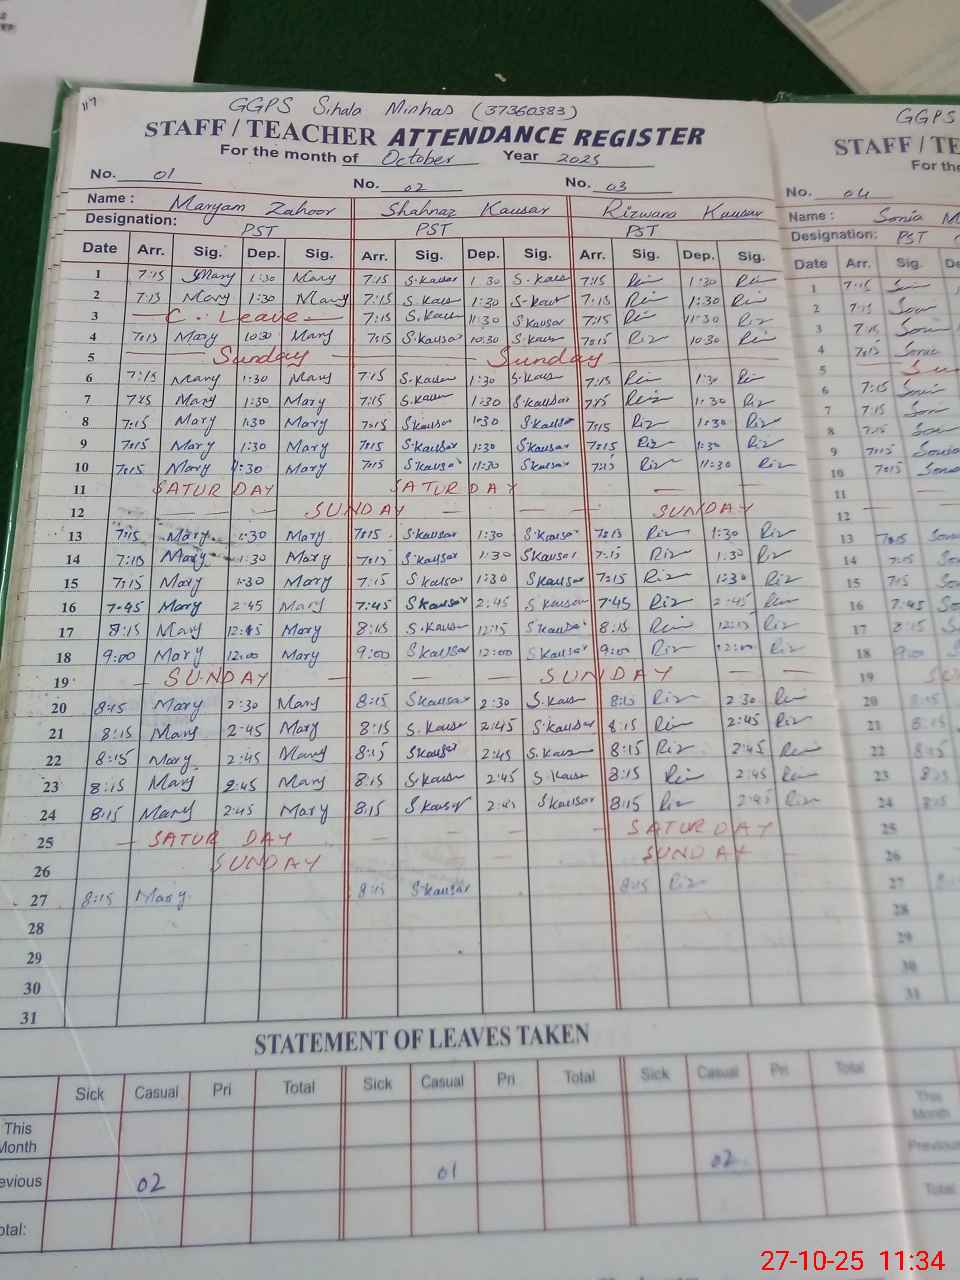 117
GGPS Sihala Minhas (37360383)
STAFF / TEACHER ATTENDANCE REGISTER
For the month of October Year 2025
No. 01 No. 02 No. 03
Name : Maryam Zahoor Shahnaz Kausar Rizwana Kausar
Designation: PST PST PST
Date Arr. Sig. Dep. Sig. Arr. Sig. Dep. Sig. Arr. Sig. Dep. Sig.
1 7:15 Mary 1:30 Mary 7:15 S.Kausar 1:30 S.Kausar 7:15 Riz 1:30 Riz
2 7:15 Mary 1:30 Mary 7:15 S.Kausar 1:30 S.Kausar 7:15 Riz 1:30 Riz
3 C. Leave 7:15 S.Kausar 11:30 Skausar 7:15 Riz 11:30 Riz
4 7:15 Mary 10:30 Mary 7:15 S.Kausar 10:30 S.Kausar 7:15 Riz 10:30 Riz
5 Sunday Sunday
6 7:15 Mary 1:30 Mary 7:15 S.Kausar 1:30 S.Kausar 7:15 Riz 1:30 Riz
7 7:15 Mary 1:30 Mary 7:15 S.Kausar 1:30 S.Kausar 7:15 Riz 1:30 Riz
8 7:15 Mary 1:30 Mary 7:15 Skausar 1:30 Skausar 7:15 Riz 1:30 Riz
9 7:15 Mary 1:30 Mary 7:15 S.Kausar 1:30 Skausar 7:15 Riz 1:30 Riz
10 7:15 Mary 11:30 Mary 7:15 Skausar 11:30 Skausar 7:15 Riz 11:30 Riz
11 SATURDAY SATURDAY
12 SUNDAY SUNDAY
13 7:15 Mary 1:30 Mary 7:15 S.Kausar 1:30 S.Kausar 7:15 Riz 1:30 Riz
14 7:15 Mary 1:30 Mary 7:15 S.Kausar 1:30 SKausar 7:15 Riz 1:30 Riz
15 7:15 Mary 1:30 Mary 7:15 S.Kausar 1:30 SKausar 7:15 Riz 1:30 Riz
16 7:45 Mary 2:45 Mary 7:45 Skausar 2:45 S.kausar 7:45 Riz 2:45 Riz
17 8:15 Mary 12:15 Mary 8:15 S.Kausar 12:15 Skausar 8:15 Riz 12:15 Riz
18 9:00 Mary 12:00 Mary 9:00 SKausar 12:00 SKausar 9:00 Riz 12:00 Riz
19 SUNDAY SUNDAY
20 8:15 Mary 2:30 Mary 8:15 Skausar 2:30 S.Kausar 8:15 Riz 2:30 Riz
21 8:15 Mary 2:45 Mary 8:15 S.Kausar 2:45 S.Kausar 8:15 Riz 2:45 Riz
22 8:15 Mary 2:45 Mary 8:15 Skausar 2:45 S.Kausar 8:15 Riz 2:45 Riz
23 8:15 Mary 2:45 Mary 8:15 S.Kausar 2:45 S.Kausar 8:15 Riz 2:45 Riz
24 8:15 Mary 2:45 Mary 8:15 Skausar 2:45 Skausar 8:15 Riz 2:45 Riz
25 SATURDAY SATURDAY
26 SUNDAY SUNDAY
27 8:15 Mary 8:15 Skausar 8:15 Riz
28
29
30
31
STATEMENT OF LEAVES TAKEN
Sick Casual Pri Total Sick Casual Pri Total Sick Casual Pri Total
This
Month
evious 02 01 02
otal:
GGPS
STAFF / TE
For the
No. 04
Name : Sonia
Designation: PST
Date Arr. Sig. Dep
1 7:15
2 7:15
3 7:15
4 7:15 Sonia
5
6 7:15
7 7:15
8 7:15
9 7:15
10 7:15
11
12
13 7:15
14 7:15
15 7:15
16 7:45
17 8:15
18 9:00
19
20 8:15
21 8:15
22 8:15
23 8:15
24 8:15
25
26
27
28
29
30
31
This
Month
Previous
Total
27-10-25 11:34